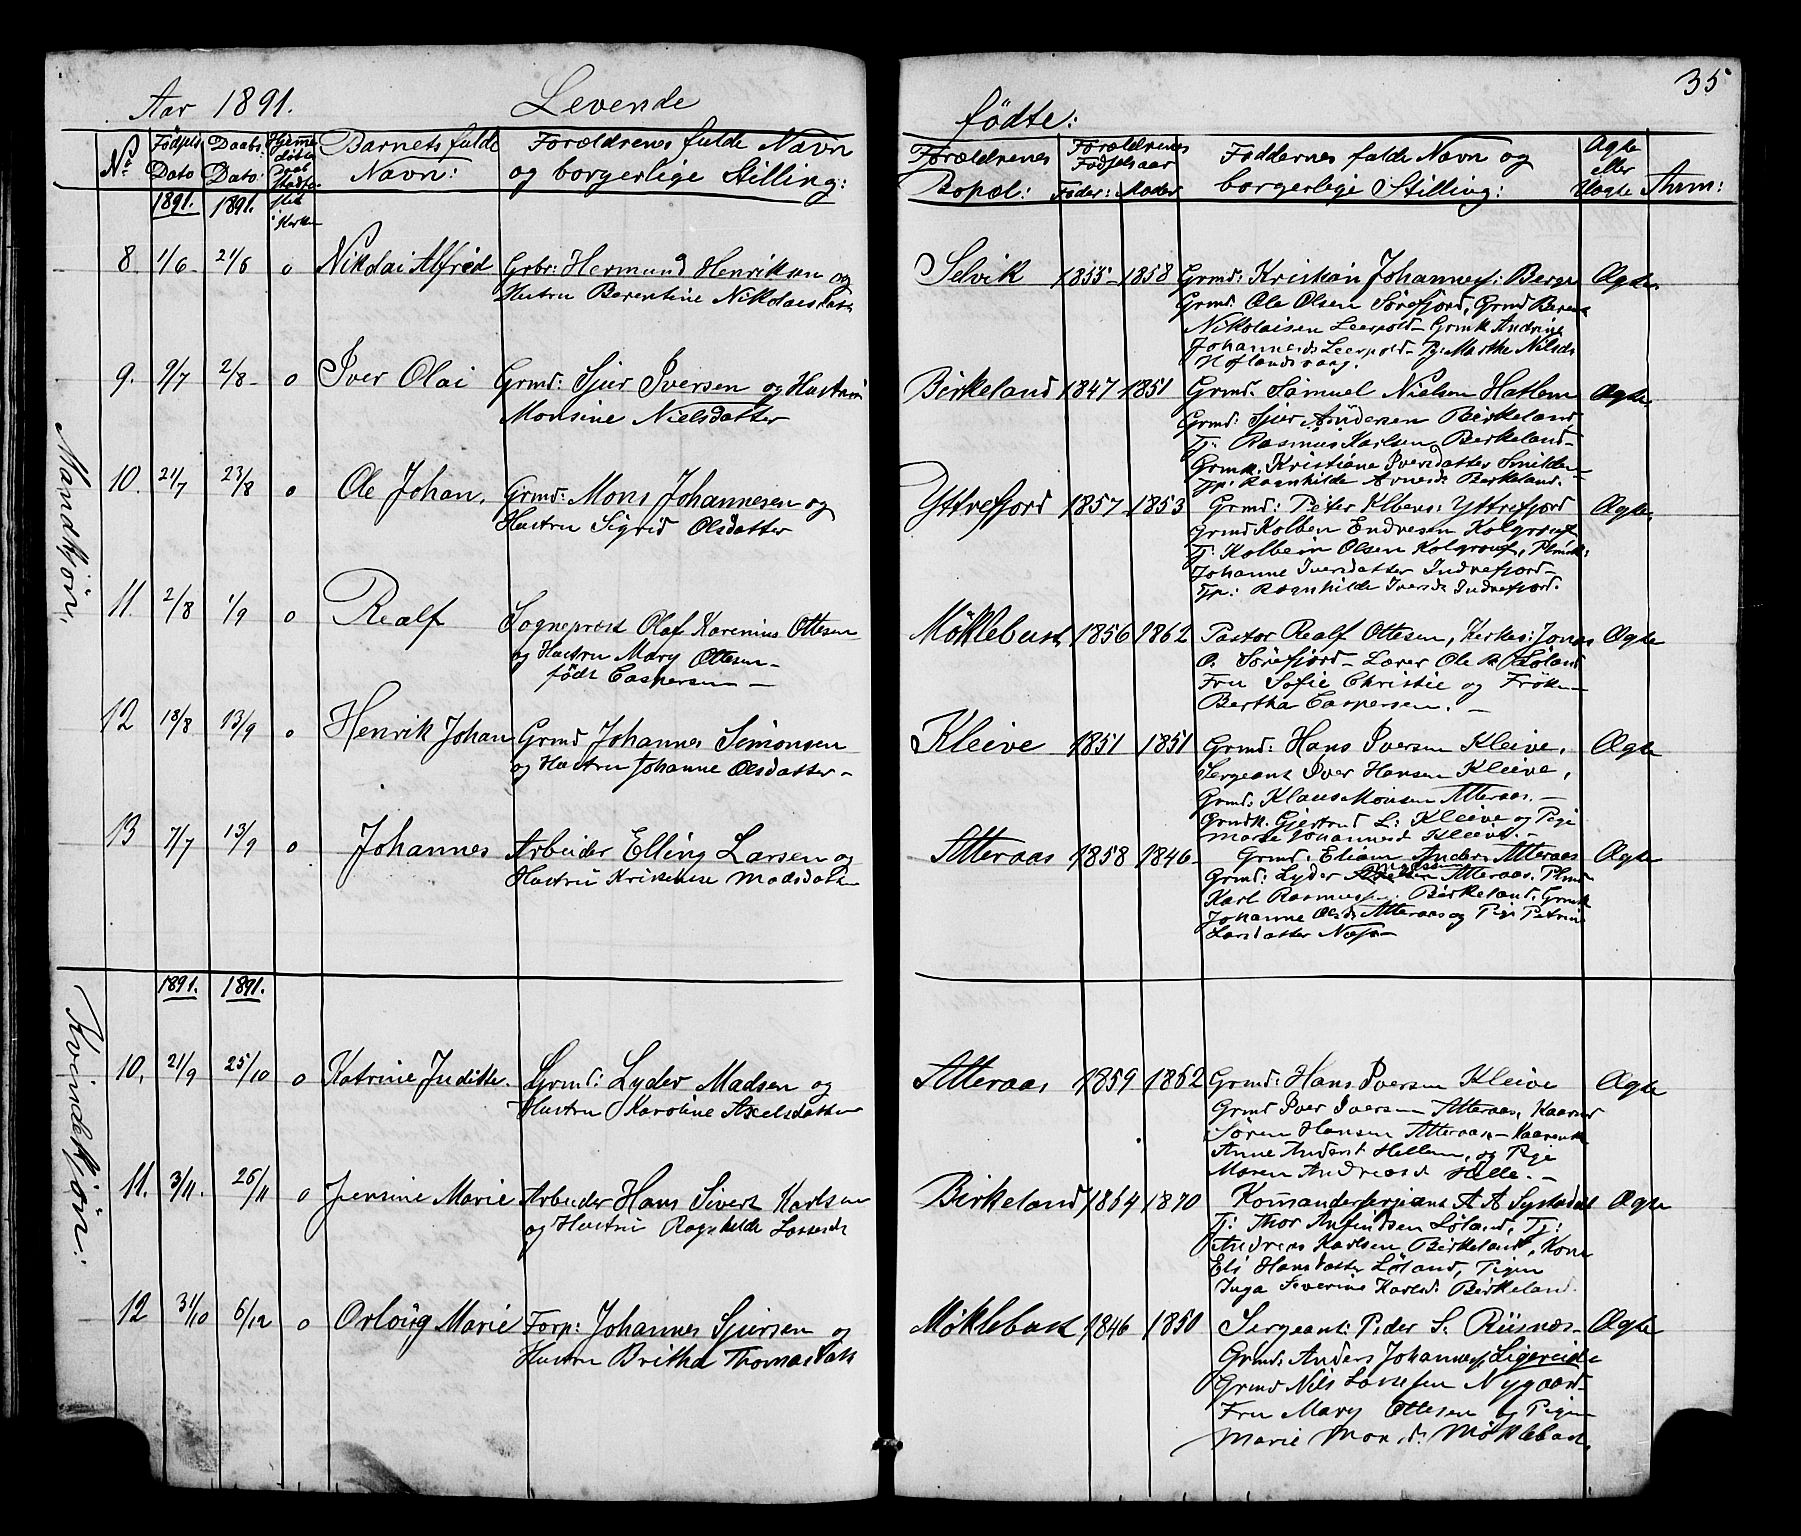 35
Aar 1891. Levende
fødte:
No
Fødsels Dato 1891.
Daabs: Dato: 1891.
Barnets fulde Navn:
Forældrenes fulde Navn og borgerlige Stilling:
Forældrenes Bopæl:
Forældrenes Fødselsaar Fader: Moder
Faddernes fulde Navn og borgerlige Stilling:
Ægte eller Uægte
Anm:
Mandkjøn.
8. 1/6 21/6 o Nikolai Alfred
Grbr: Hermund Henriksen og
Hustru Berentine Nikolaisdatr
Selvik 1855 - 1858
Grmd: Kristian Johannes: Berge
Grmd Ole Olsen Sørefjord, Grmd Bern
Nikolaisen Leerpold - Grmk Andrine
Johannesd Leerpold - Pg. Marthe Nilsdr
Hoflandsvaag.
Ægte.
9. 9/7 2/8 - o Iver Olai
Grmd: Sjur Iversen og Hustru
Monsine Nielsdatter
Birkeland 1847 - 1851
Grmd. Samuel Nielsen Hatlem
Grmd: Sjur Andersen Birkeland
Tj. Rasmus Karlsen Birkeland -
Grmk. Kristiane Iversdatter Smilden -
Tjp: Ragnhilde Arnesd: Birkeland.
Ægte.
10. 24/7 23/8 o Ole Johan.
Grmd: Mons Johannesen og
Hustru Sigrid Olsdatter
Yttrefjord 1857 - 1853
Grmd: Peter Yttrefjord
Grmd Kolben Endresen Kolgrouf
Tj: Kolbein Olsen Kolgrouf,
Johanne Iversdatter Indrefjord -
Tjp: Ragnhilde Iversd: Indrefjord.
Ægte.
11. 2/8 1/9 o Realf
Sognepræst Olaf Karenius Ottesen
og Hustru Mary Ottesen -
født Caspersen -
Møklebust 1856 - 1862
Pastor Realf Ottesen, Kirkes: Jonas
O. Sørefjord - Lærer Ole R. Løland
Fru Sofie Christie og Frøken
Bertha Caspersen. -
Ægte
12 18/8 13/9 o Henrik Johan
Grmd Johannes Simonsen
og Hustru Johanne Olsdatter -
Kleive 1851 1851
Grmd: Hans Iversen Kleive,
Sergeant Iver Hansen Kleive,
Grmd: Klaus Monsen Atteraas. -
Grmdk. Gjertrud L: Kleive og Pige
Marie Johannesd Kleive. -
Ægte
13 7/7 13/9 o Johannes
Arbeider Elling Larsen og
Hustru Madsdatter
Atteraas 1858 1846 -
Grmd: Anders: Atteraas
Grmd: Lyder Madsen Atteraas.
Karl Rasmuss. Birkeland. Grmk
Johanne Olsd: Atteraas og Pige Petrine
Larsdatter Næss -
Ægte
Kvindekjøn.
1891. 1891.
10. 21/9 25/10 o Katrine Juditte.
Grmd: Lyder Madsen og
Hustru Karoline Axelsdatter
Atteraas 1859 1862
Grmd: Hans Iversen Kleive
Grmd Iver Iversen Atteraas,
Søren Hansen Atteraas -
Anne Andersd Hellem, og Pige
Maren Andreasd Helle. -
Ægte
11. 3/11. 26/11 o Jensine Marie
Arbeider Hans Sivert Karlsen
og Hustru Ragnhilde Lassesd:
Birkeland 1864 1870
Komandersergeant A A Systadal
Tj: Thor Anfindsen Løland, Tj:
Andreas Karlsen Birkeland, Kone
Eli Hansdatter Løland, Pigen
Inga Severine Karlsd: Birkeland.
Ægte
12 31/10 6/12 o Orloug Marie
Forp: Johannes Sjursen og
Hustru Britha Thomasdatr
Møklebust 1846 1850
Sergeant: Peder S. Risnæs -
Grmd: Anders Johannes: Ligereide
Grmd Nils Lassesen Nygaard -
Fru Mary Ottesen og Pigen
Marie Mon.d: Møklebust.
Ægte